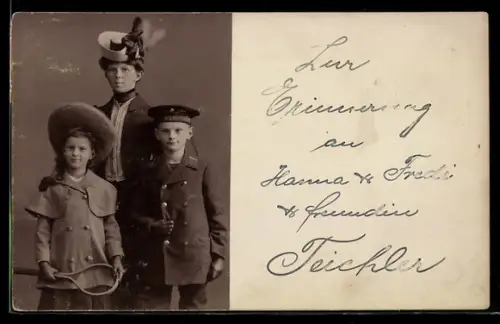 Zur
Erinnerung
an
Hanna & Fredi
& freundin
Teichler